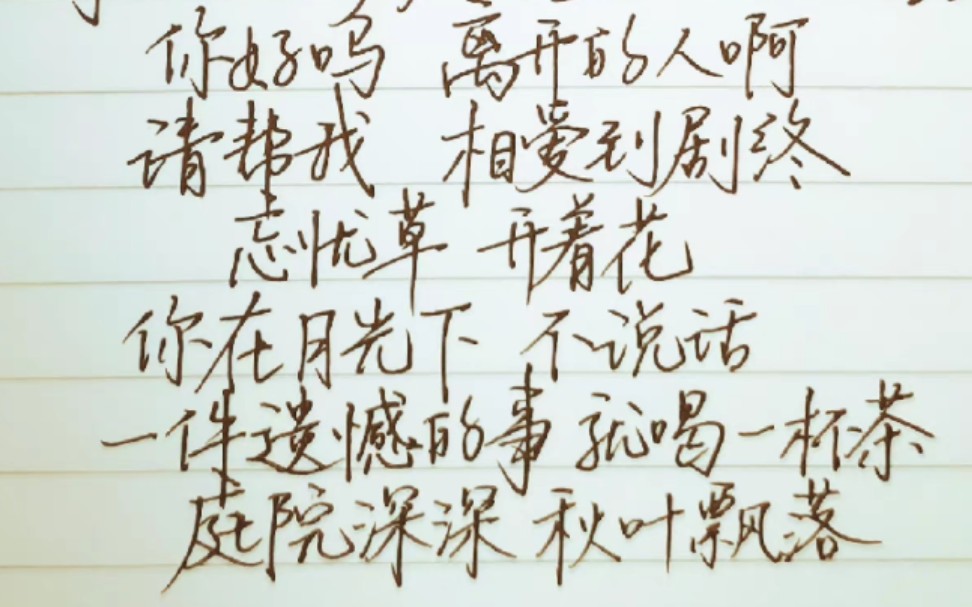 你好吗 离开的人啊
请帮我 相爱到剧终
忘忧草 开着花
你在月光下 不说话
一件遗憾的事 就喝一杯茶
庭院深深 秋叶飘落